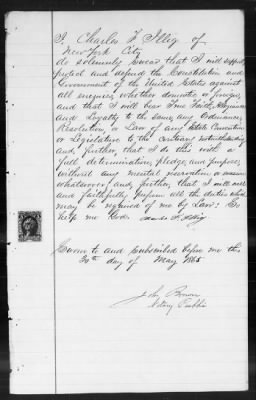 I Charles F. Illig of
New York City
do solemnly swear that I will support
protect and defend the Constitution and
Government of the United States against
all enemies, whether domestic or foreign,
and that I will bear True Faith, Allegiance
and Loyalty to the same, any Ordinance,
Resolution, or Law of any State Convention
or Legislature to the contrary notwithstanding
and, further, that I do this with a
full determination, pledge, and purpose,
without any mental reservation or evasion
whatsoever, and, further, that I will well
and faithfully perform all the duties which
may be required of me by law: So
help me God. Charles F. Illig
Sworn to and subscribed before me this
30th day of May 1865
John Brown
Notary Public